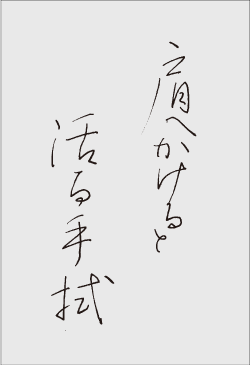 肩へかけると
活る手拭